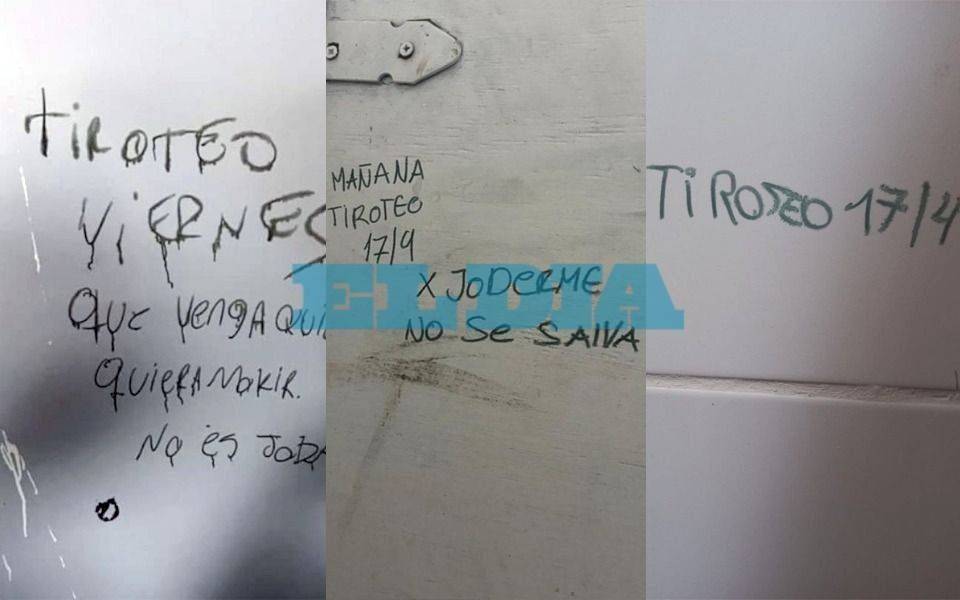 TIROTEO
VIERNES
QUE VENGA QUI
QUIERA MORIR.
NO ES JODA
MAÑANA
TIROTEO
17/9
X JODERME
NO SE SALVA
TIROTEO 17/4
EL DIA